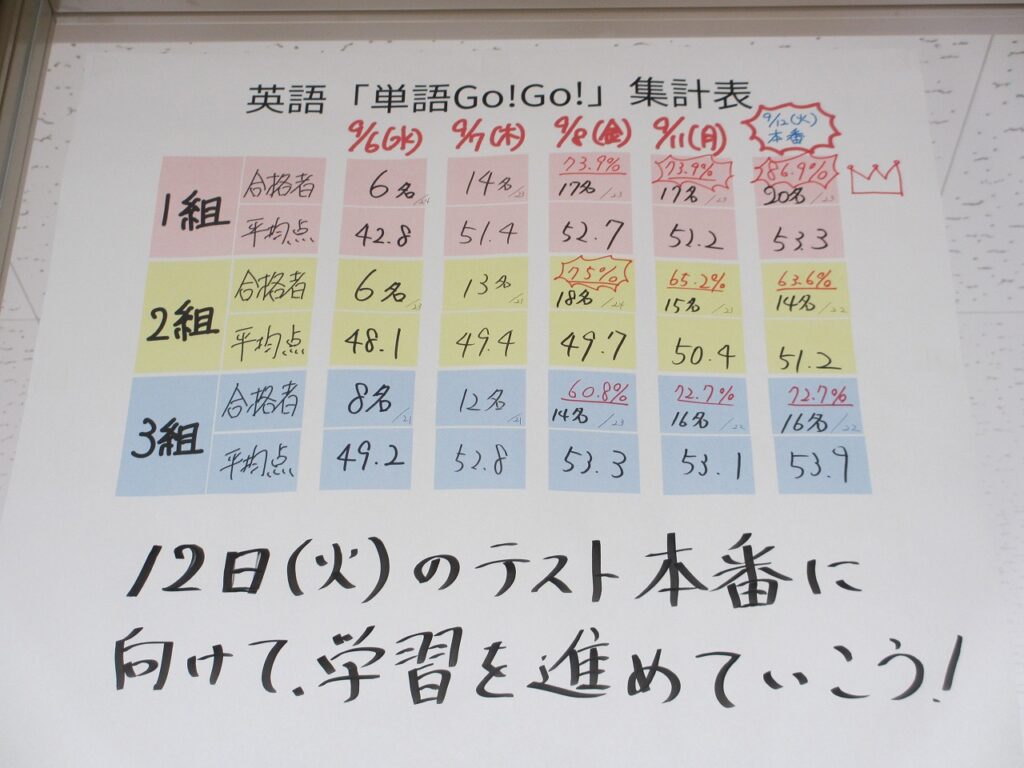 英語「単語Go!Go!」集計表
9/6(水) 9/7(木) 9/8(金) 9/11(月) 9/12(火) 本番
1組
合格者 6名/24 14名/23 73.9% 17名/23 73.9% 17名/23 86.9% 20名/23
平均点 42.8 51.4 52.7 51.2 53.3
2組
合格者 6名/23 13名/21 75% 18名/24 65.2% 15名/23 63.6% 14名/22
平均点 48.1 49.4 49.7 50.4 51.2
3組
合格者 8名/21 12名/21 60.8% 14名/23 72.7% 16名/22 72.7% 16名/22
平均点 49.2 52.8 53.3 53.1 53.9
12日(火)のテスト本番に
向けて、学習を進めていこう!